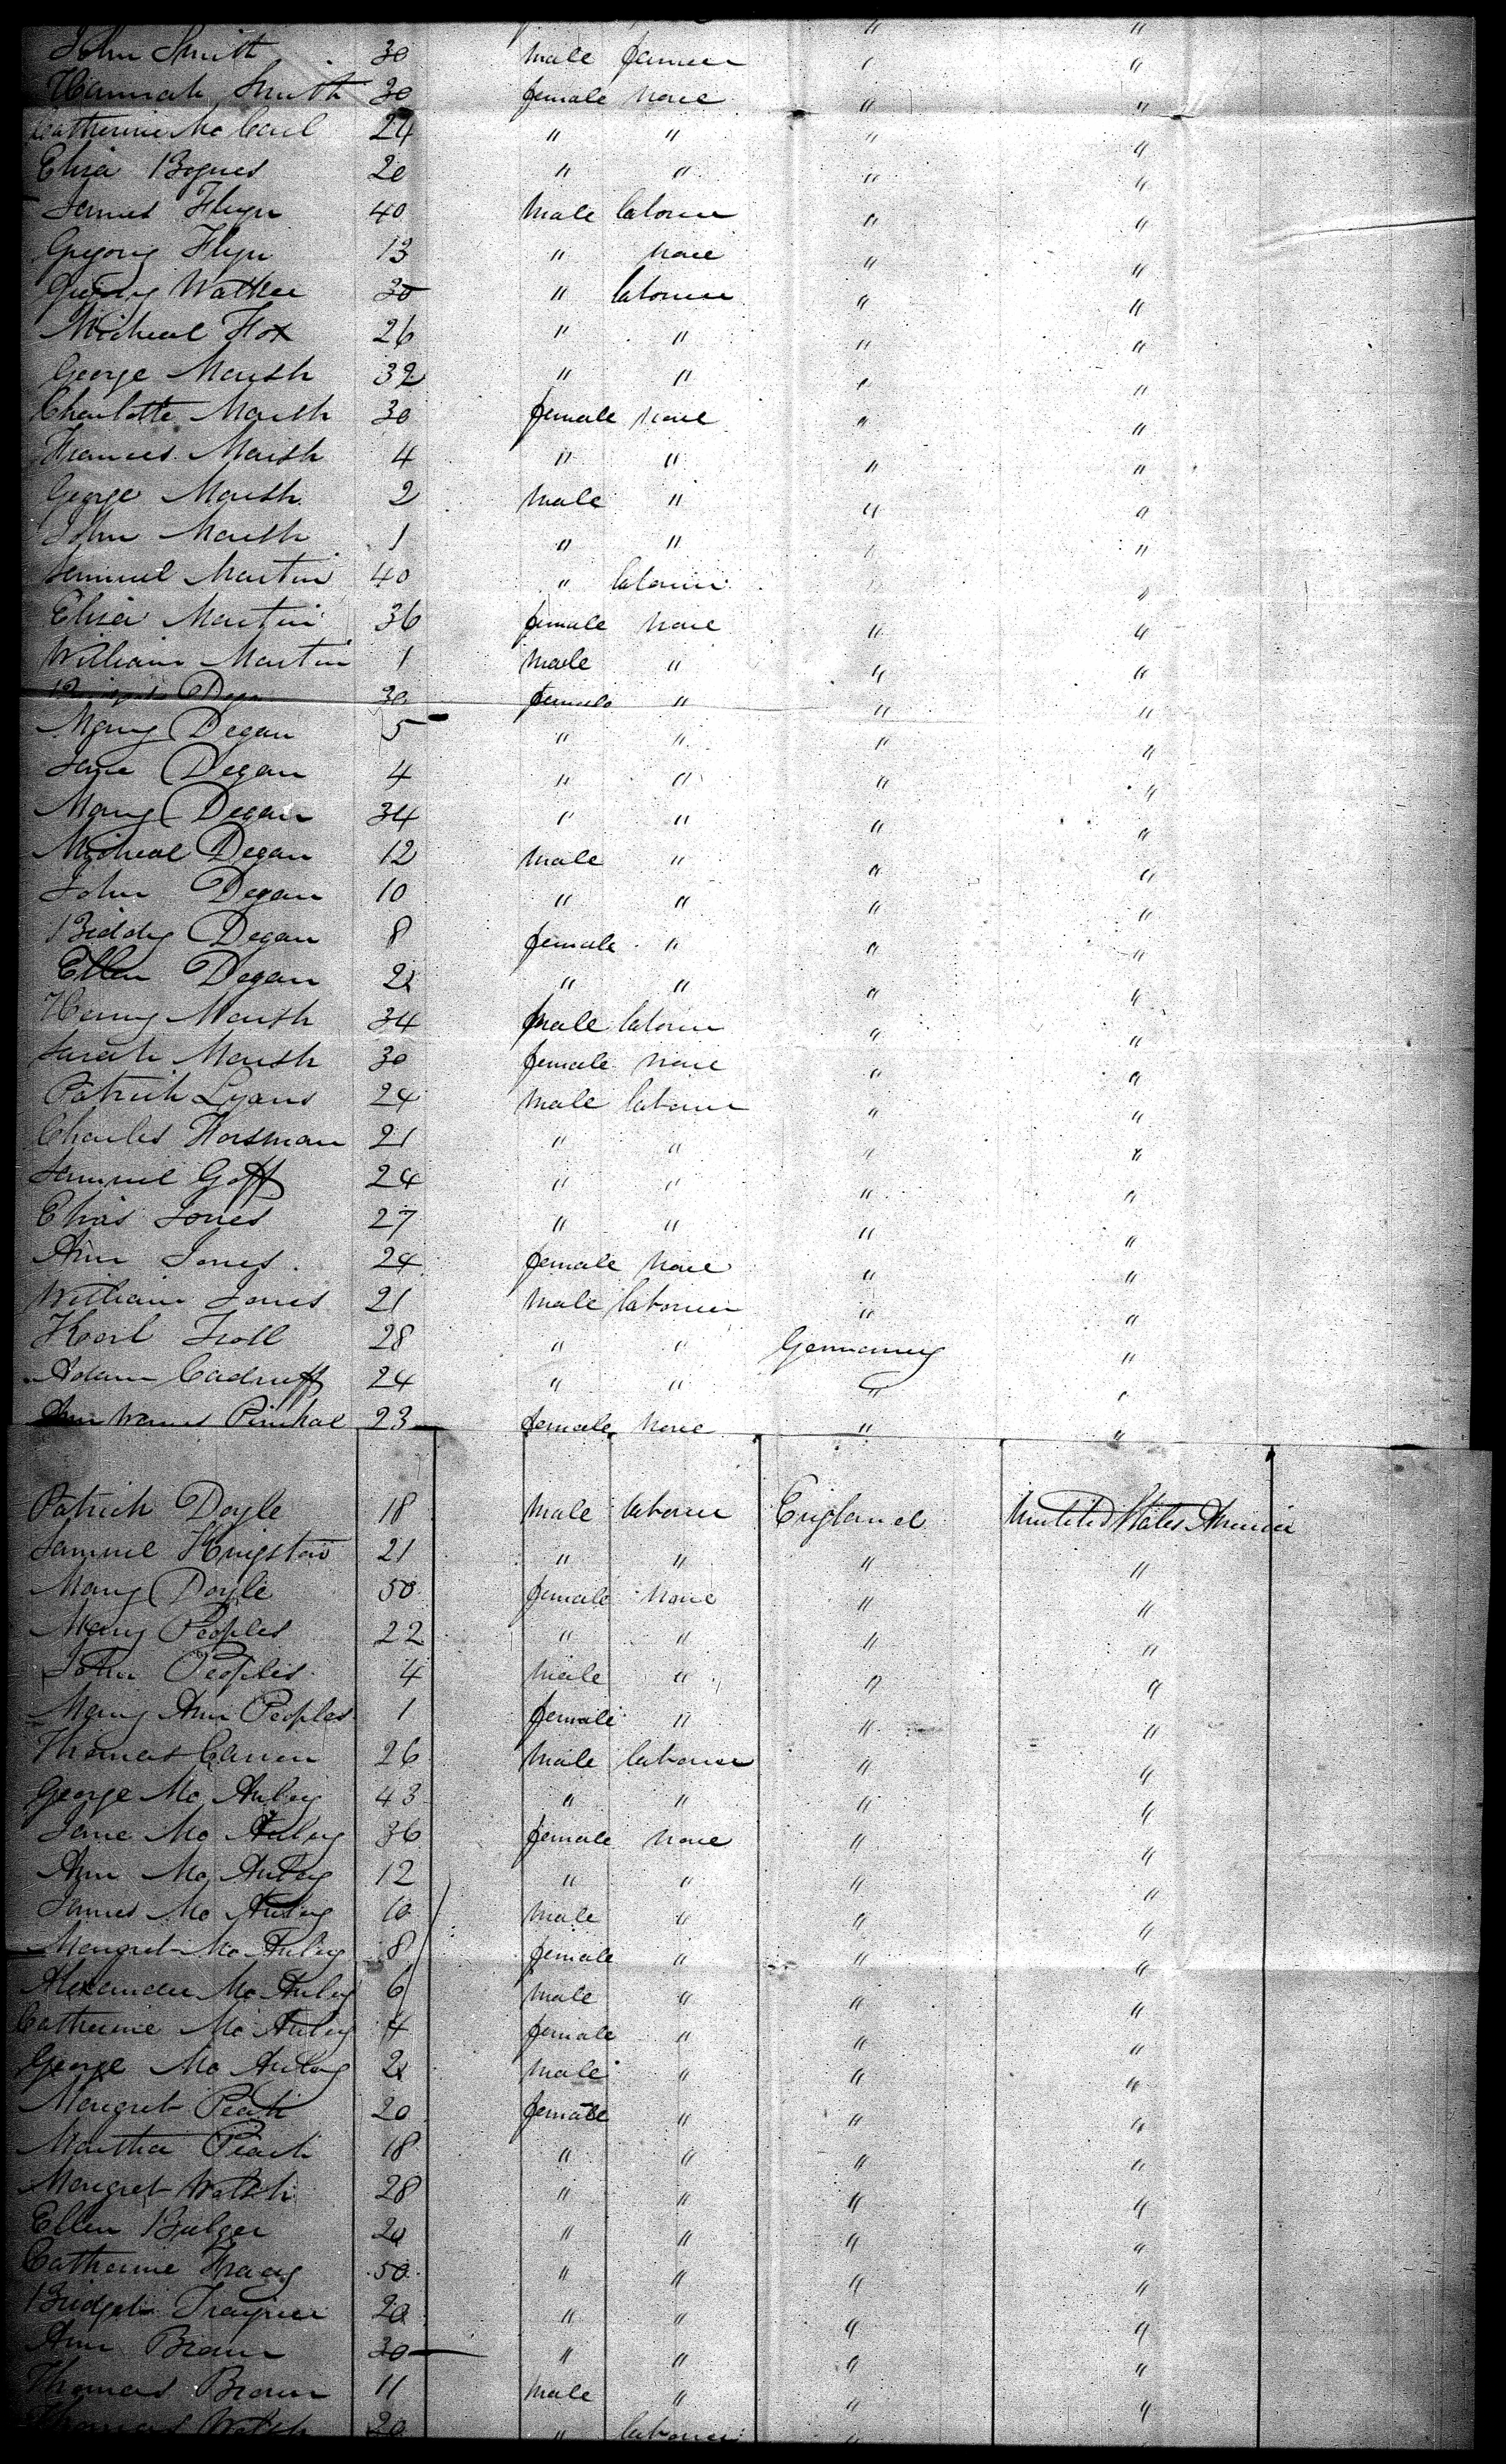 " "
John Smith 30 male farmer " "
Hannah Smith 30 female none " "
Catherine Mc Carl 24 " " " "
Eliza Bogues 20 " " " "
James Flyn 40 male laborer " "
Gregory Flyn 13 " none " "
Walker 30 " laborer " "
Micheal Fox 26 " " " "
George Marsh 32 " " " "
Charlotte Marsh 30 female none " "
Frances Marsh 4 " " " "
George Marsh 2 male " " "
John Marsh 1 " " " "
Samuel Martin 40 " laborer " "
Eliza Martin 36 female none " "
William Martin 1 male " " "
Degan 30 female " " "
Mary Degan 5 " " " "
Jane Degan 4 " " " "
Mary Degan 34 " " " "
Micheal Degan 12 male " " "
John Degan 10 " " " "
Biddy Degan 8 female " " "
Ellen Degan 2 " " " "
Henry Marsh 34 male laborer " "
Sarah Marsh 30 female none " "
Patrick Lyons 24 male laborer " "
Charles Horsman 21 " " " "
Samuel Goff 24 " " " "
Elias Jones 27 " " " "
Ann Jones 24 female none " "
William Jones 21 male laborer " "
Karl Troll 28 " " Germany "
Adam Cadruff 24 " " " "
23 female none " "
Patrick Doyle 18 male laborer England United States America
Samuel Kingston 21 " " " "
Mary Doyle 50 female none " "
Mary Peoples 22 " " " "
John Peoples 4 male " " "
Mary Ann Peoples 1 female " " "
Thomas 26 male laborer " "
George Mc Auley 43 " " " "
Jane Mc Auley 36 female none " "
Ann Mc Auley 12 " " " "
James Mc Auley 10 male " " "
Margret Mc Auley 8 female " " "
Alexander Mc Auley 6 male " " "
Catherine Mc Auley 4 female " " "
George Mc Auley 2 male " " "
Margret 20 female " " "
Martha 18 " " " "
Margret Walsh 28 " " " "
Ellen Bulger 20 " " " "
Catherine 50 " " " "
Bridget Traynor 20 " " " "
Ann Brown 30 " " " "
Thomas Brown 11 male " " "
Thomas Walsh 20 " laborer "